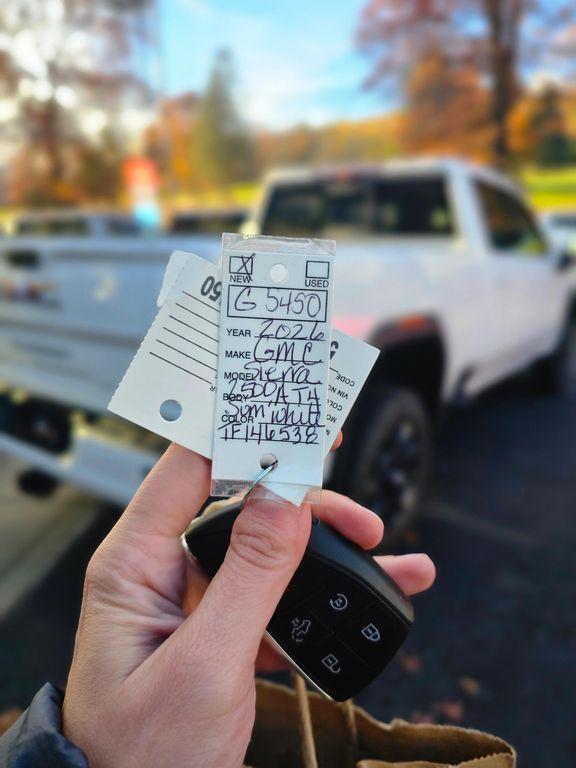 NEW USED
G 5450
YEAR 2026
MAKE GMC
MODEL Sierra
BODY 2500 AT4
COLOR Sum White
TF146532
50
CODE